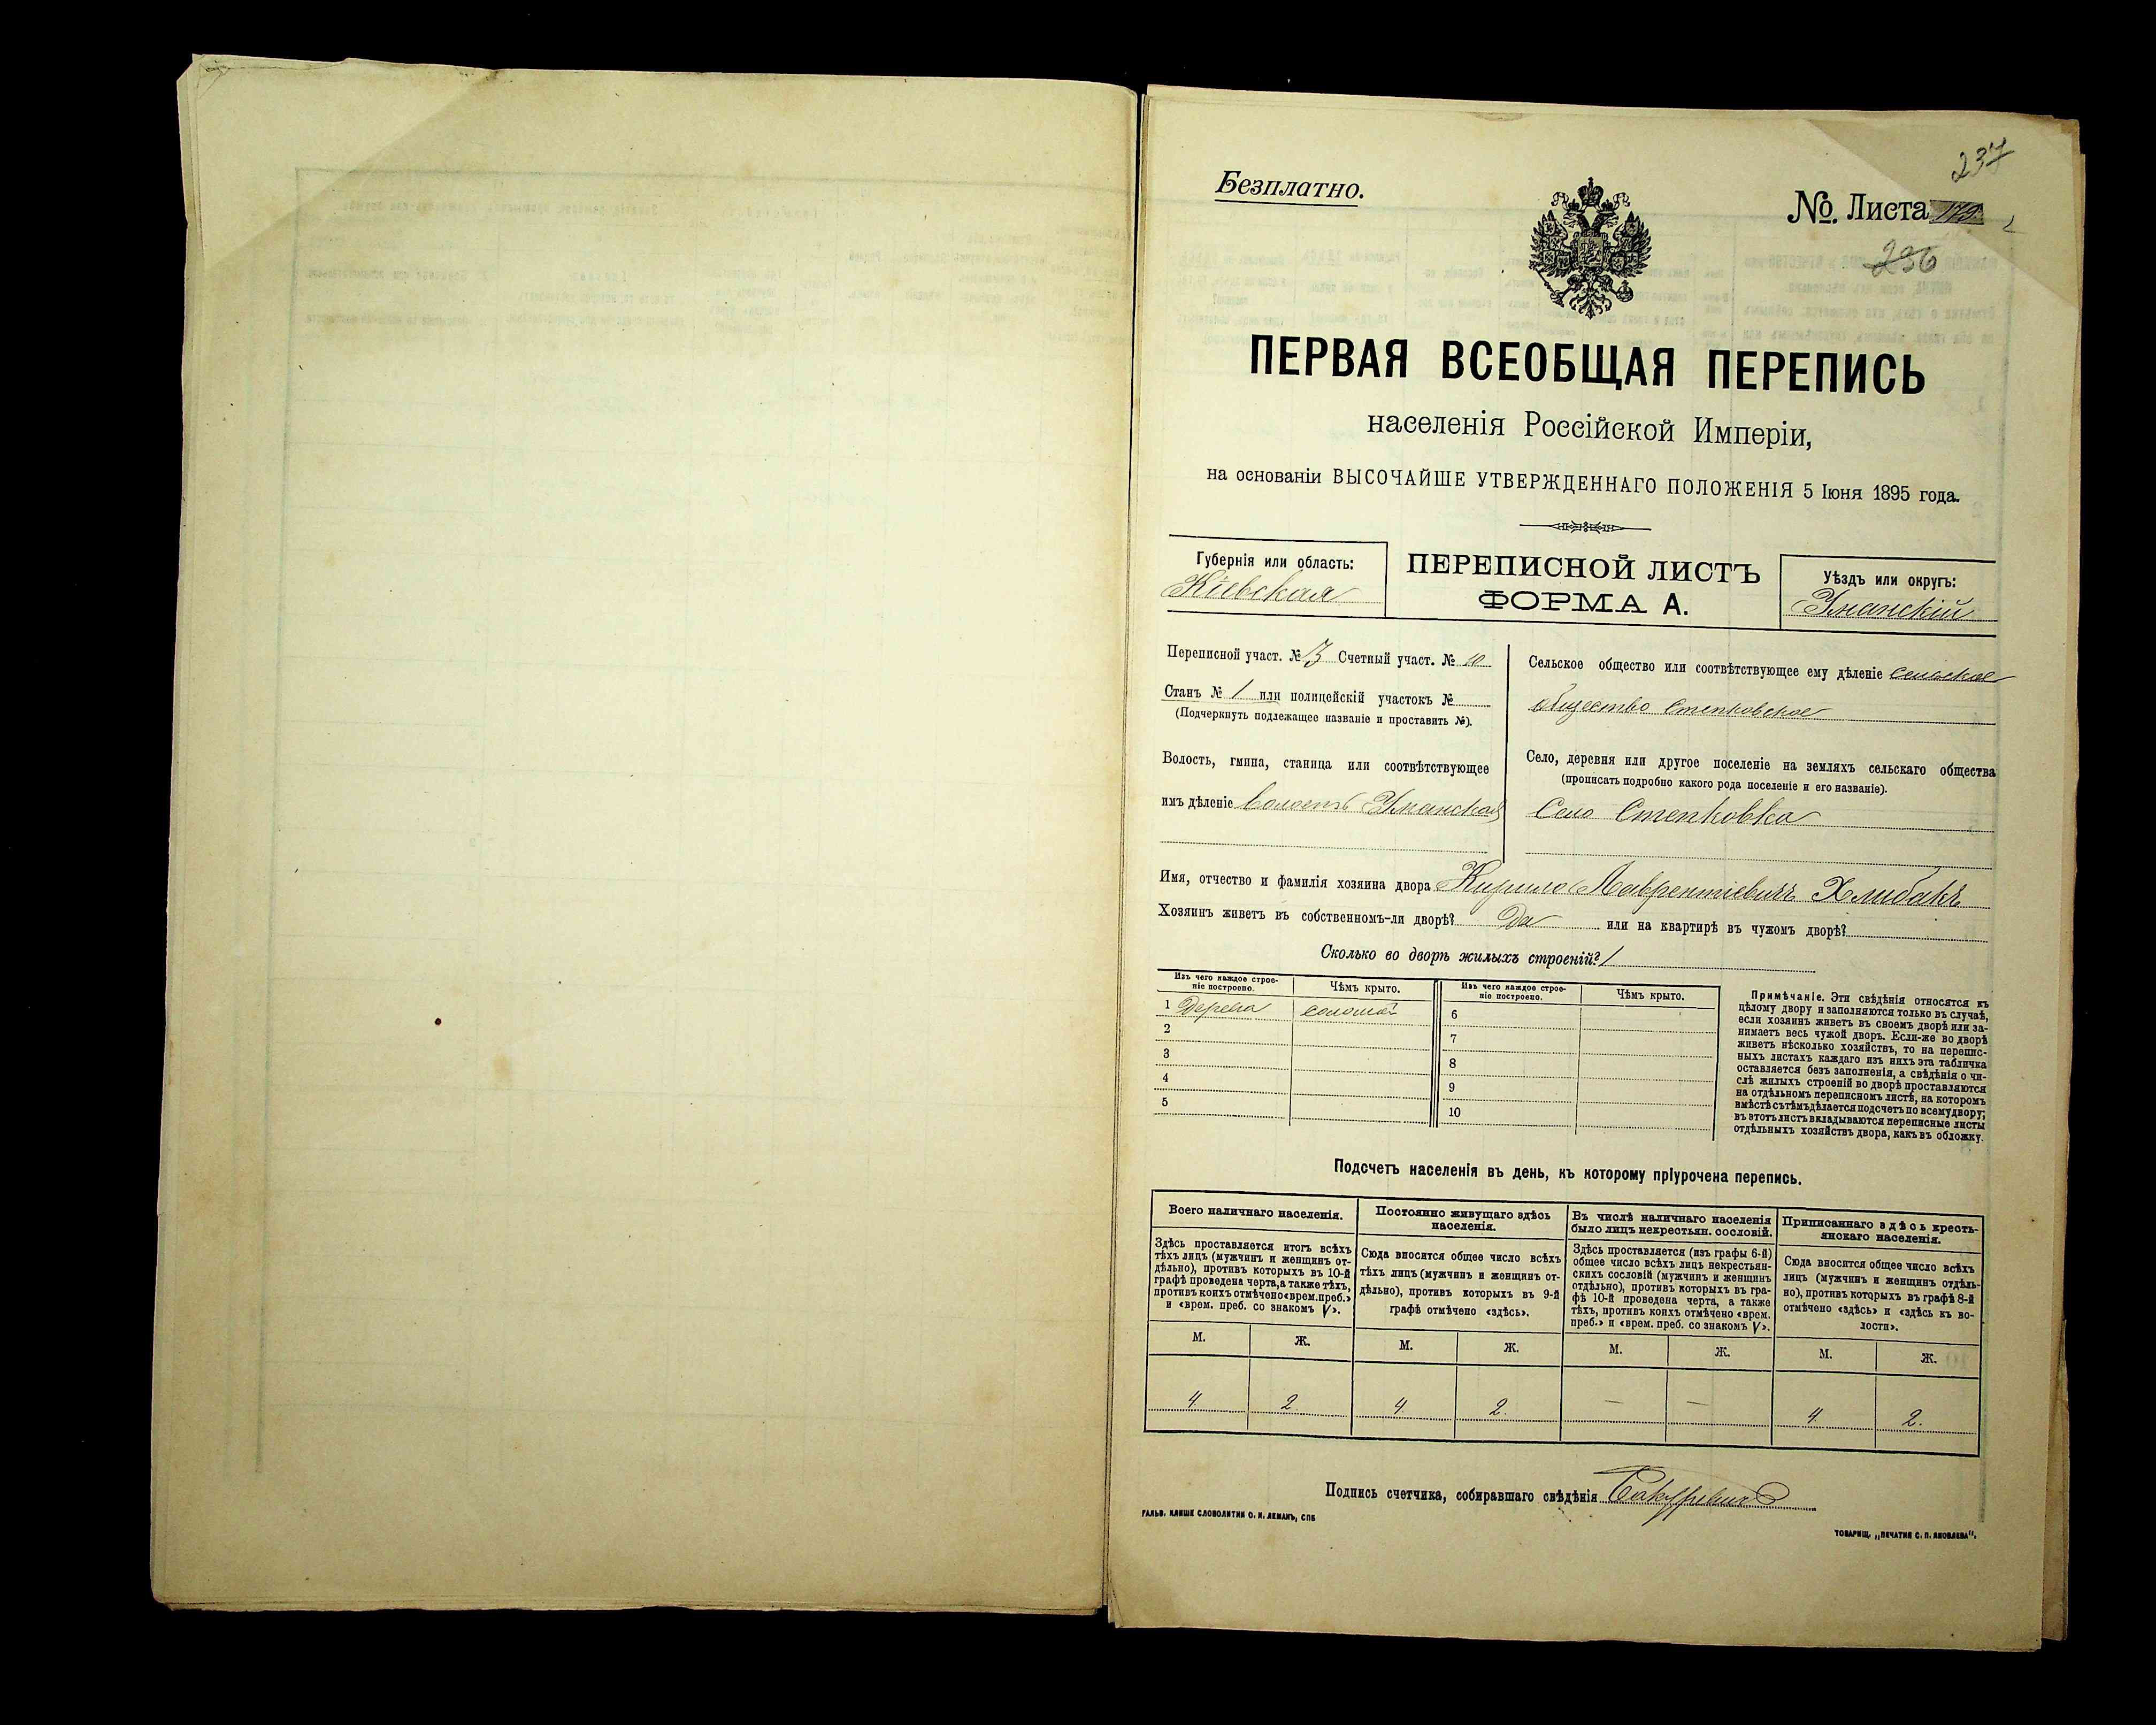 237
Безплатно.
№. Листа 179.
236
ПЕРВАЯ ВСЕОБЩАЯ ПЕРЕПИСЬ
населенія Россійской Имперіи,
на основаніи ВЫСОЧАЙШЕ УТВЕРЖДЕННАГО ПОЛОЖЕНІЯ 5 Іюня 1895 года.
Губернія или область:
Кіевская
ПЕРЕПИСНОЙ ЛИСТЪ
ФОРМА А.
Уѣздъ или округъ:
Уманскій
Переписной участ. № 3 Счетный участ. № 10
Станъ № 1 или полицейскій участокъ №
(Подчеркнуть подлежащее названіе и проставить №).
Волость, гмина, станица или соотвѣтствующее
имъ дѣленіе волость Уманская
Сельское общество или соотвѣтствующее ему дѣленіе сельское
общество Степковское
Село, деревня или другое поселеніе на земляхъ сельскаго общества
(прописать подробно какого рода поселеніе и его названіе).
Село Степковка
Имя, отчество и фамилія хозяина двора Кирило Лаврентіевичъ Хлибакъ
Хозяинъ живетъ въ собственномъ-ли дворѣ? Да или на квартирѣ въ чужомъ дворѣ?
Сколько во дворѣ жилыхъ строеній? 1
Изъ чего каждое строе-
ніе построено.
Чѣмъ крыто.
1 Дерева соломой
2
3
4
5
Изъ чего каждое строе-
ніе построено.
Чѣмъ крыто.
6
7
8
9
10
Примѣчаніе. Эти свѣдѣнія относятся къ
цѣлому двору и заполняются только въ случаѣ,
если хозяинъ живетъ въ своемъ дворѣ или за-
нимаетъ весь чужой дворъ. Если-же во дворѣ
живетъ нѣсколько хозяйствъ, то на перепис-
ныхъ листахъ каждаго изъ нихъ эта табличка
оставляется безъ заполненія, а свѣдѣнія о чи-
слѣ жилыхъ строеній во дворѣ проставляются
на отдѣльномъ переписномъ листѣ, на которомъ
вмѣстѣ съ тѣмъ дѣлается подсчетъ по всему двору;
въ этотъ листъ вкладываются переписные листы
отдѣльныхъ хозяйствъ двора, какъ въ обложку.
Подсчетъ населенія въ день, къ которому пріурочена перепись.
Всего наличнаго населенія.
Здѣсь проставляется итогъ всѣхъ
тѣхъ лицъ (мужчинъ и женщинъ от-
дѣльно), противъ которыхъ въ 10-й
графѣ проведена черта, а также тѣхъ,
противъ коихъ отмѣчено «врем. преб.»
и «врем. преб. со знакомъ V».
М. Ж.
4 2
Постоянно живущаго здѣсь
населенія.
Сюда вносится общее число всѣхъ
тѣхъ лицъ (мужчинъ и женщинъ от-
дѣльно), противъ которыхъ въ 9-й
графѣ отмѣчено «здѣсь».
М. Ж.
4. 2.
Въ числѣ наличнаго населенія
было лицъ некрестьян. сословій.
Здѣсь проставляется (изъ графы 6-й)
общее число всѣхъ лицъ некрестьян-
скихъ сословій (мужчинъ и женщинъ
отдѣльно), противъ которыхъ въ гра-
фѣ 10-й проведена черта, а также
тѣхъ, противъ коихъ отмѣчено «врем.
преб.» и «врем. преб. со знакомъ V».
М. Ж.
— —
Приписаннаго здѣсь кресть-
янскаго населенія.
Сюда вносится общее число всѣхъ
лицъ (мужчинъ и женщинъ отдѣль-
но), противъ которыхъ въ графѣ 8-й
отмѣчено «здѣсь» и «здѣсь къ во-
лости».
М. Ж.
4 2.
Подпись счетчика, собиравшаго свѣдѣнія
ГАЛЬВ. КЛИШЕ СЛОВОЛИТНИ О. И. ЛЕМАНЪ, СПБ
ТОВАРИЩ. „ПЕЧАТНЯ С. П. ЯКОВЛЕВА".